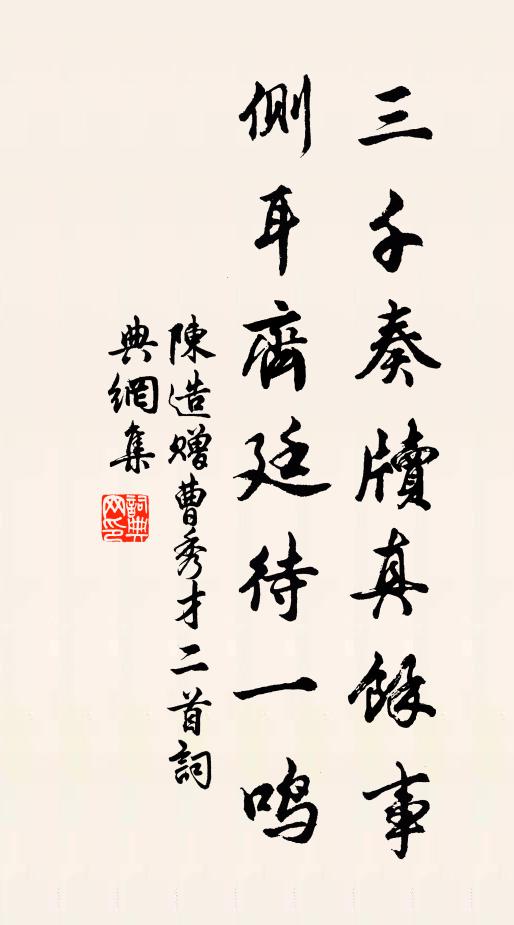 三千奏牘真餘事
側耳齊廷待一鳴
陳造贈曹秀才二首詞
典網集
詞典網印